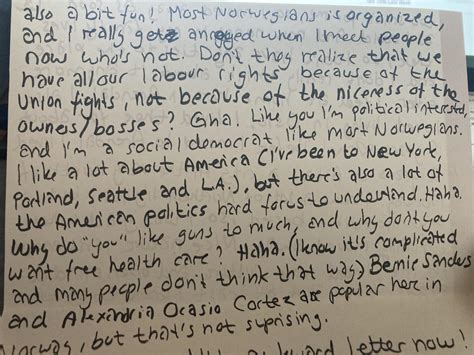 also a bit fun! Most Norwegians is organized,
and I really get annoyed when I meet people
now who's not. Don't they realize that we
have all our labour rights because of the
Union fights, not because of the niceness of the
owners/bosses? Gha! Like you I'm political interested
and I'm a social democrat, like most Norwegians.
I like a lot about America (I've been to New York,
Portland, Seattle and L.A.), but there's also a lot of
the American politics hard for us to understand. Haha.
Why do "you" like guns to much, and why don't you
want free health care? Haha. (I know it's complicated
and many people don't think that way) Bernie Sanders
and Alexandria Ocasio Cortez are popular here in
Norway, but that's not suprising.
letter now!